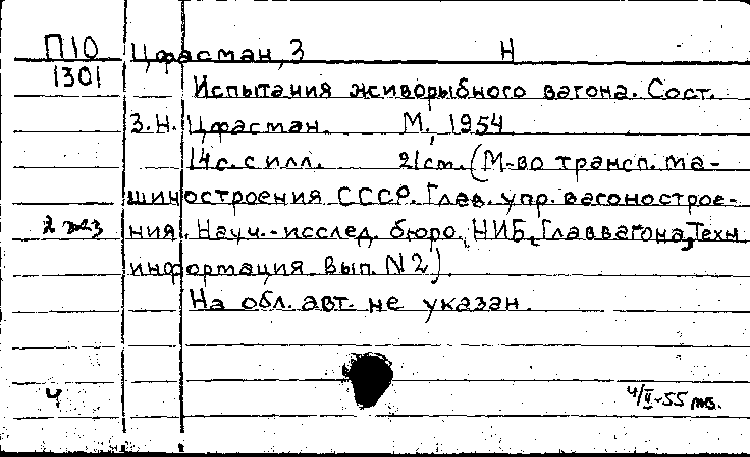 П10 Цфасман, З Н
1301
Испытания живорыбного вагона. Сост.
З.Н. Цфасман. М., 1954
14с. с илл. 21см. (М-во трансп. ма-
шиностроения СССР. Глав. упр. вагонострое-
2 экз ния. Науч.-исслед. бюро, НИБ, Главвагона, Техн.
информация. Вып. N2).
На обл. авт. не указан.
ч 4/II-55